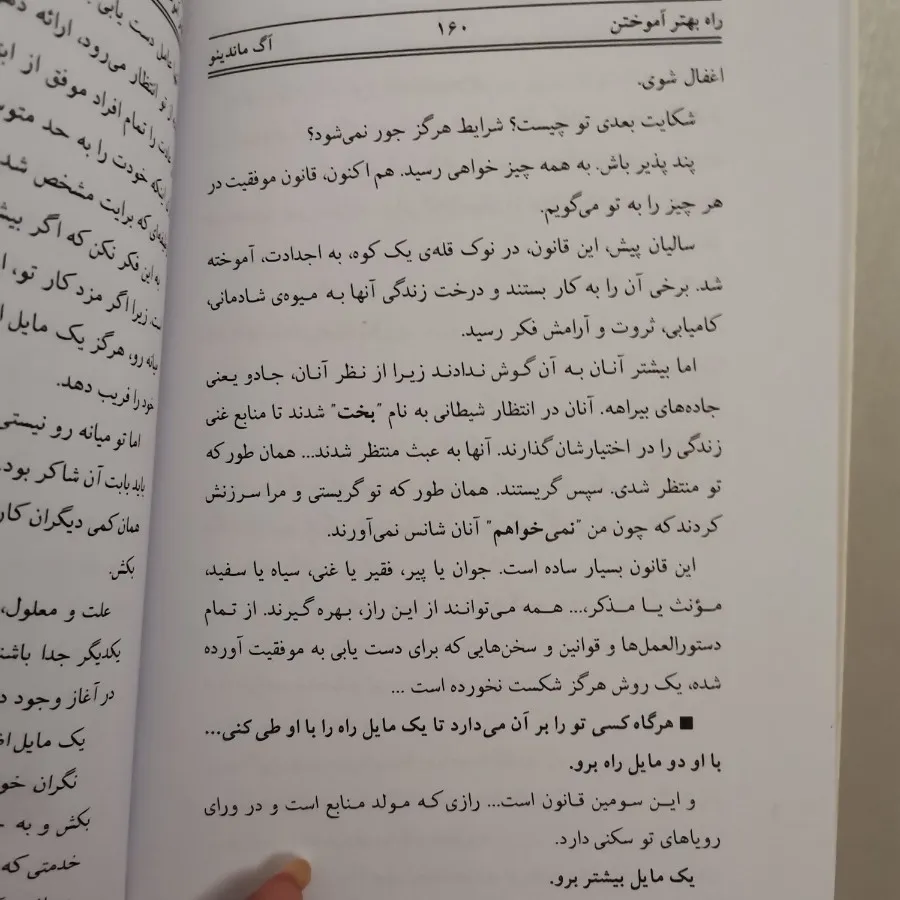 راه بهتر آموختن ۱۶۰ آگ ماندینو
اغفال شوی.
شکایت بعدی تو چیست؟ شرایط هرگز جور نمی‌شود؟
پند پذیر باش. به همه چیز خواهی رسید. هم اکنون، قانون موفقیت در
هر چیز را به تو می‌گویم.
سالیان پیش، این قانون، در نوک قله‌ی یک کوه، به اجدادت، آموخته
شد. برخی آن را به کار بستند و درخت زندگی آنها به میوه‌ی شادمانی،
کامیابی، ثروت و آرامش فکر رسید.
اما بیشتر آنان به آن گوش ندادند زیرا از نظر آنان، جادو یعنی
جاده‌های بیراهه. آنان در انتظار شیطانی به نام "بخت" شدند تا منابع غنی
زندگی را در اختیارشان گذارند. آنها به عبث منتظر شدند... همان طور که
تو منتظر شدی. سپس گریستند. همان طور که تو گریستی و مرا سرزنش
کردند که چون من "نمی‌خواهم" آنان شانس نمی‌آورند.
این قانون بسیار ساده است. جوان یا پیر، فقیر یا غنی، سیاه یا سفید،
مؤنث یا مذکر،... همه می‌توانند از این راز، بهره گیرند. از تمام
دستورالعمل‌ها و قوانین و سخن‌هایی که برای دست یابی به موفقیت آورده
شده، یک روش هرگز شکست نخورده است ...
■ هرگاه کسی تو را بر آن می‌دارد تا یک مایل راه را با او طی کنی...
با او دو مایل راه برو.
و این سومین قانون است... رازی که مولد منابع است و در ورای
رویاهای تو سکنی دارد.
یک مایل بیشتر برو.
عامل دست یابی
تو انتظار می‌رود، ارائه
را تمام افراد موفق از
اینکه خودت را به حد
که برایت مشخص شد
به این فکر نکن که اگر
زیرا اگر مزد کار تو،
میانه رو، هرگز یک مایل
خود را فریب دهد.
اما تو میانه رو نیستی
باید بابت آن شاکر بود
همان کمی دیگران کار
بکش.
علت و معلول،
یکدیگر جدا
در آغاز وجود
یک مایل
نگران
بکش و به
خدمتی که